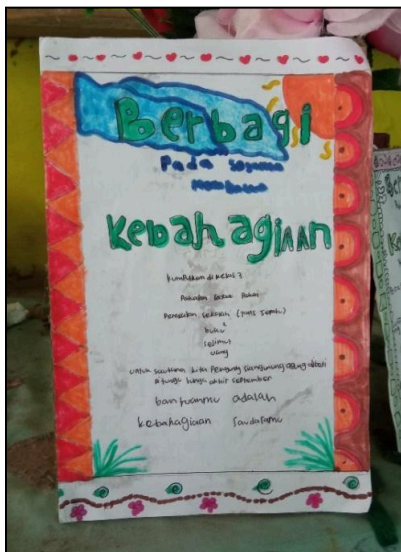 Berbagi
Pada sesama
membawa
Kebahagiaan
kumpulkan di kelas 7
Pakaian bekas Pakai
Peralatan sekolah (tas, sepatu)
buku
selimut
uang
untuk saudara kita Pengungsi gunung agung di Bali
di tunggu hingga akhir september
bantuanmu adalah
kebahagiaan saudaramu